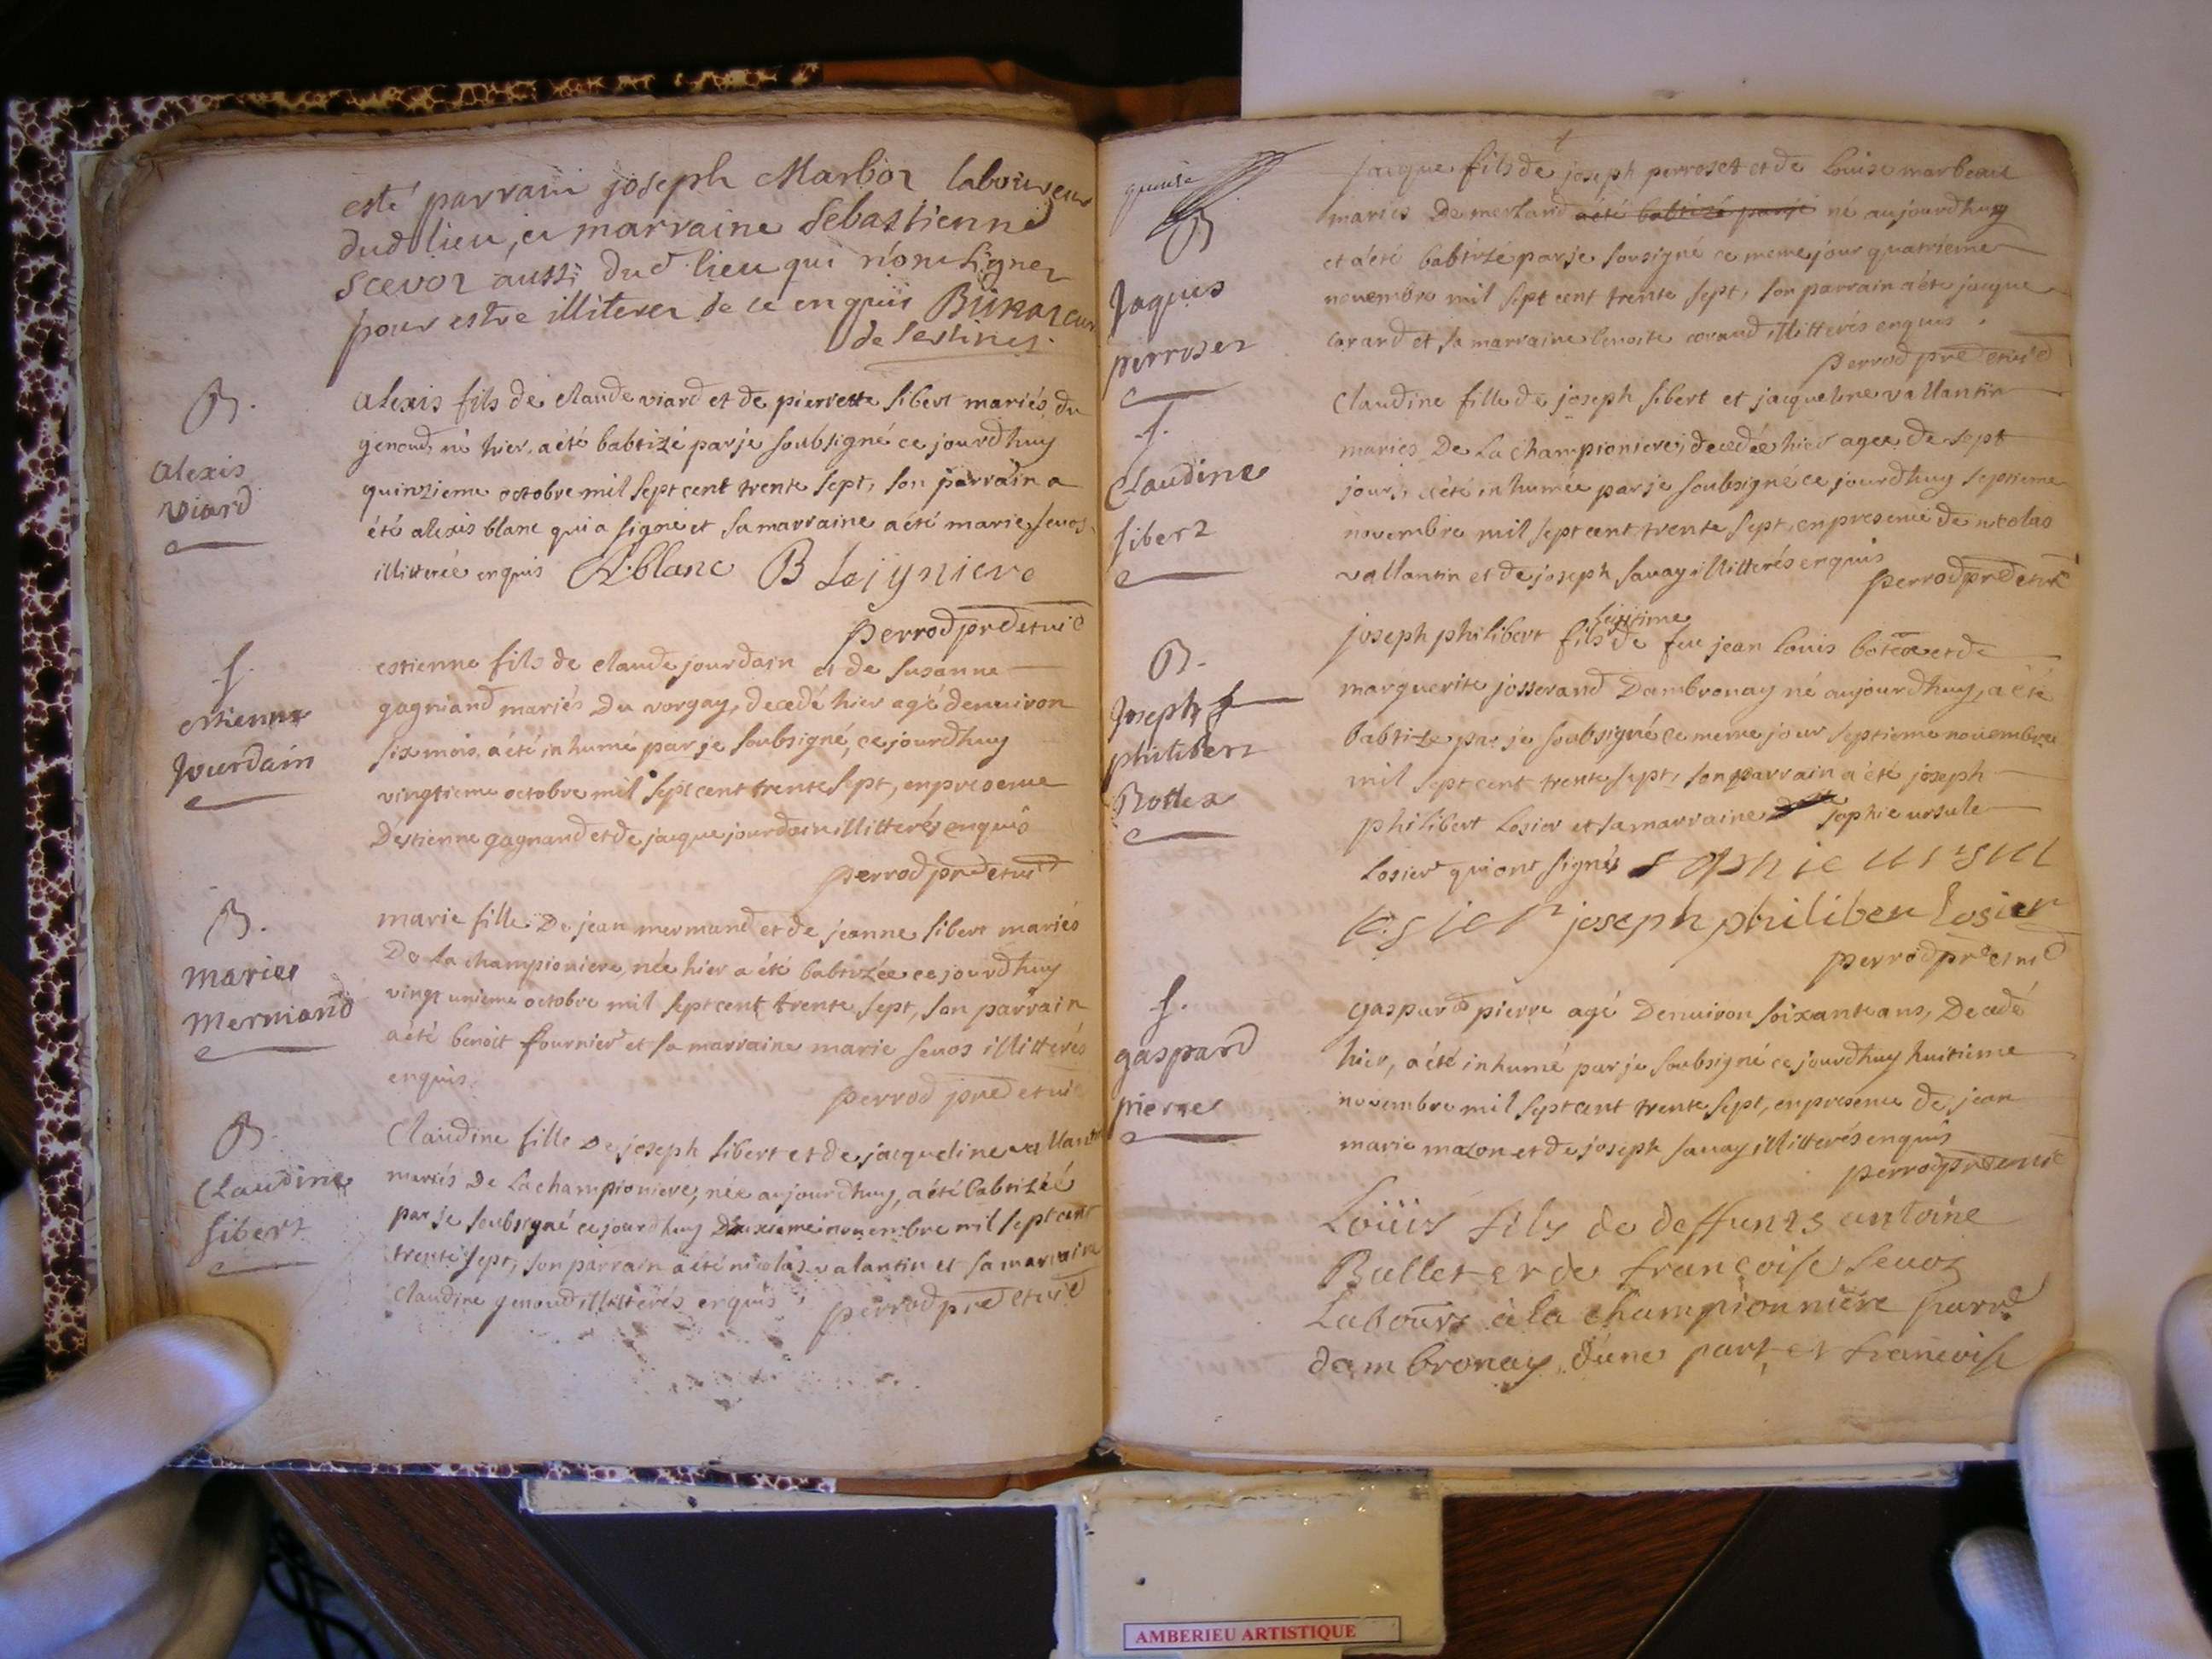 esté parrain joseph Marboz laboureur
dud lieu, et marraine Sebastienne
Scevoz aussi dud lieu qui n'ont signez
pour estre illiterez de ce enquis
B.
alexis
viard
alexis fils de claude viard et de pierrette sibert mariés du
genoud, né hier, a été babtizé par je soubsigné ce jourdhuy
quinzieme octobre mil sept cent trente sept, son parrain a
été alexis blanc qui a signé et sa marraine a été marie sevos
illitterée enquis A. blanc B
perrod prê et vic
f.
estienne
Jourdain
estienne fils de claude jourdain et de susanne
gagniand mariés du vorgay, decedé hier agé denuiron
six mois, a été inhumé par je soubsigné, ce jourdhuy
vingtieme octobre mil sept cent trente sept, en presence
d'estienne gagnand et de jacque jourdain illitterés enquis
perrod prê et vic
B.
marie
mermand
marie fille de jean mermand et de jeanne sibert mariés
de la championiere, née hier a été babtizée ce jourdhuy
vingt unieme octobre mil sept cent trente sept, son parrain
a été benoit fournier et sa marraine marie sevos illitterés
enquis
perrod prê et vic
B.
Claudine
sibert
Claudine fille de joseph sibert et de jacqueline vallantin
mariés de la championiere, née aujourdhuy, a été babtizée
par je soubsigné ce jourdhuy deuxieme novembre mil sept cent
trente sept, son parrain a été nicolas valantin et sa marraine
claudine genoud illitterés enquis perrod prê et vic
B
Jaques
perroset
jacque fils de joseph perroset et de Louise marbeau
mariés de merland a été babtizé par je né aujourdhuy
et a été babtizé par je sousigné ce meme jour quatrieme
novembre mil sept cent trente sept, son parrain a été jacque
et sa marraine benoite illitterés enquis
perrod prê et vic
f.
Claudine
sibert
Claudine fille de joseph sibert et jacqueline vallantin
mariés de la championiere, decedée hier agee de sept
jours, a été inhumée par je soubsigné ce jourdhuy septieme
novembre mil sept cent trente sept, en presence de nicolas
vallantin et de joseph savay illitterés enquis
perrod prê et vic
B.
Joseph
philibert
Bottex
joseph philibert fils legitime de feu jean louis et de
marguerite josserand dambronay né aujourdhuy, a été
babtizé par je soubsigné ce meme jour septieme novembre
mil sept cent trente sept, son parrain a été joseph
philibert Losier et sa marraine sophie ursule
Losier qui ont signés sophie ursul
losier joseph philibert losier
perrod prê et vic
f.
gaspard
pierre
gaspard pierre agé denuiron soixante ans, decedé
hier, a été inhumé par je soubsigné ce jourdhuy huitieme
novembre mil sept cent trente sept, en presence de jean
marie mazon et de joseph savay illitterés enquis
perrod prê et vic
Loüis fils de deffunts antoine
Bullet et de françoise sevoz
Labours à la championniere parrê
dambronay d'une part et francoise
AMBERIEU ARTISTIQUE